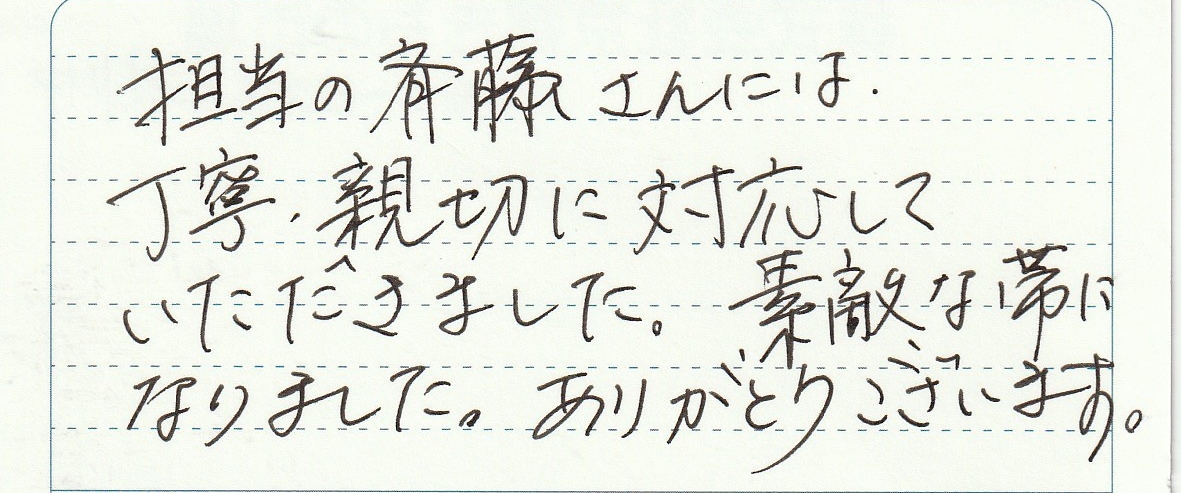 担当の斉藤さんには.
丁寧.親切に対応して
いただきました。素敵な帯に
なりました。ありがとうございます。